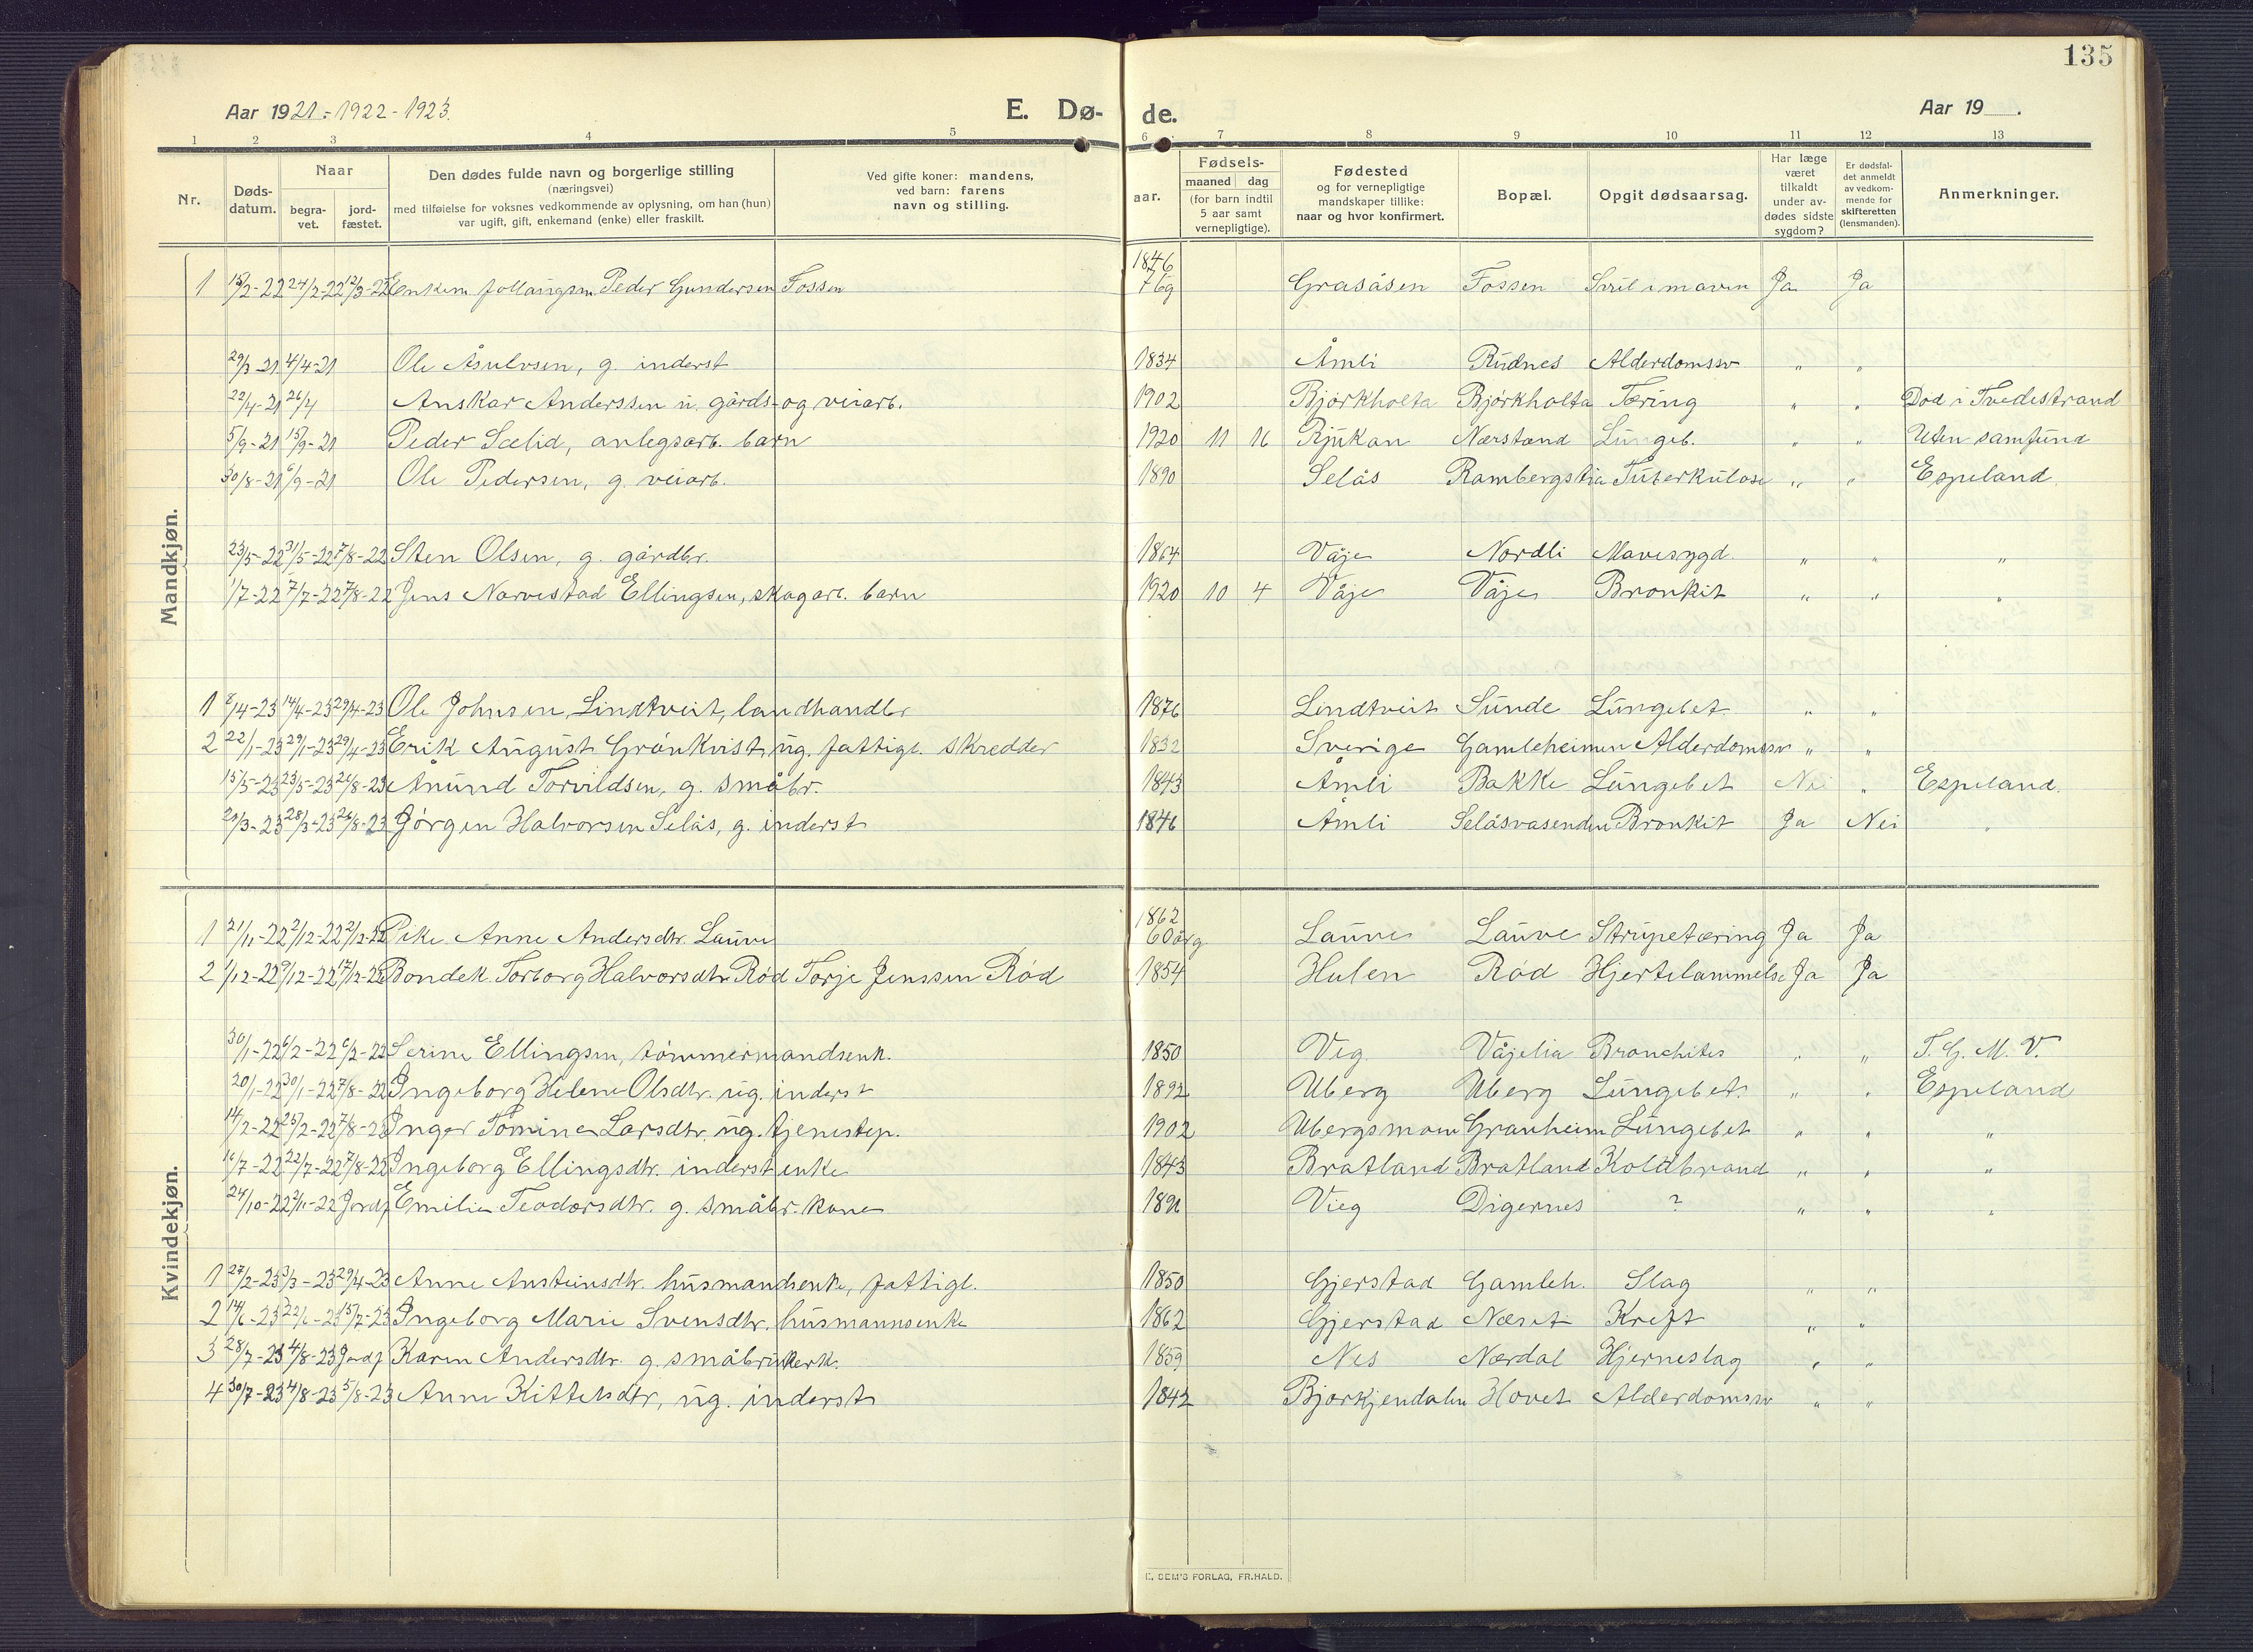 135
Aar 1921-1922-1923.
E. Dø-
de.
Aar 19 .
1 2 3 4 5 6 7 8 9 10 11 12 13
Nr.
Døds-
datum.
Naar
begra-
vet.
jord-
fæstet.
Den dødes fulde navn og borgerlige stilling
(næringsvei)
med tilføielse for voksnes vedkommende av oplysning, om han (hun)
var ugift, gift, enkemand (enke) eller fraskilt.
Ved gifte koner: mandens,
ved barn: farens
navn og stilling.
aar.
Fødsels-
maaned dag
(for barn indtil
5 aar samt
vernepligtige).
Fødested
og for vernepligtige
mandskaper tillike:
naar og hvor konfirmert.
Bopæl.
Opgit dødsaarsag.
Har læge
været
tilkaldt
under av-
dødes sidste
sygdom?
Er dødsfal-
det anmeldt
av vedkom-
mende for
skifteretten
(lensmanden).
Anmerkninger.
Mandkjøn.
1846
1 15/2-22 24/2-22 12/3-22 Enkem. Peder Gundersen Fossen Grasåsen Fossen Ja Ja
29/3-21 4/4-21 Ole Åsulvsen, g. inderst 1834 Åmli Rudnes Alderdomssv " "
22/4-21 26/4 Anskar Anderssen u. gårds- og veiarb. 1902 Bjørkholta Bjørkholta Tæring " " Død i Tvedestrand
5/9-21 15/9-21 Peder Sælid, anlegsarb. barn 1920 11 16 Rjukan Nærstand Lungeb. " " Uten samfund
30/8-21 6/9-21 Ole Pedersen, g. veiarb. 1890 Selås Rambergstia Tuberkulose " " Espeland
23/5-22 31/5-22 7/8-22 Sten Olsen, g. gårdbr. 1864 Våje Nordli Mavesygd. " " "
1/7-22 7/7-22 7/8-22 Jens Narvestad Ellingsen, skogarb. barn 1920 10 4 Våje Våje Bronkit " " "
1 8/4-23 14/4-23 29/4-23 Ole Johnsen Lindtveit, landhandler 1876 Lindtveit Sunde Lungebet. " "
2 22/1-23 29/1-23 29/4-23 Erik August Grönkvist, ug. fattigl. skredder 1832 Sverige Gamleheimen Alderdomssv " "
15/5-23 23/5-23 26/8-23 Ånund Torvildsen, g. småbr. 1843 Åmli Bakke Lungebet Nei " Espeland.
20/3-23 28/3-23 26/8-23 Jørgen Halvorsen Selås, g. inderst 1846 Åmli Selåsvasenden Bronkit Ja Nei "
Kvindekjøn.
1862
1 21/11-22 2/12-22 2/12-22 Pike Anne Andersdtr. Lauve 60 årg Lauve Lauve Strupetæring Ja Ja
2 1/12-22 9/12-22 17/12-22 Bondek. Torborg Halvorsdtr. Rød Torje Jenssen Rød 1854 Hulen Rød Hjertelammelse Ja Ja
30/1-22 6/2-22 6/2-22 Serine Ellingsen, tømmermandsenk. 1850 Veg. Våjelia Bronchites " " T. G. M. V.
20/1-22 30/1-22 7/8-22 Ingeborg Helene Olsdtr. ug. inderst 1892 Uberg Uberg Lungebet. " " Espeland
14/2-22 25/2-22 7/8-22 Inger Tomine Larsdtr. ug. tjenestep. 1902 Ubergsmoen Granheim Lungebet " " "
16/7-22 22/7-22 7/8-22 Ingeborg Ellingsdtr. inderst enke 1843 Bratland Bratland Koldbrand " " "
24/10-22 2/11-22 Jordf. Emilie Teodorsdtr. g. småbr. kone Vieg Digernes ? " " "
1 27/2-23 3/3-23 29/4-23 Anne Austeinsdtr. husmandsenke, fattigl. 1850 Gjerstad Gamleh. Slag " "
2 14/6-23 22/6-23 15/7-23 Ingeborg Marie Svensdtr. husmannsenke 1862 Gjerstad Næset Kreft " "
3 28/7-23 4/8-23 Jordf Karen Andersdtr. g. småbrukerk. 1859 Nes Nærdal Hjerneslag " "
4 30/7-23 4/8-23 5/8-23 Anne Kittelsdtr, ug. inderst 1842 Bjørkjendalen Hovet Alderdomssv " "
E. SEM'S FORLAG, FR.HALD.